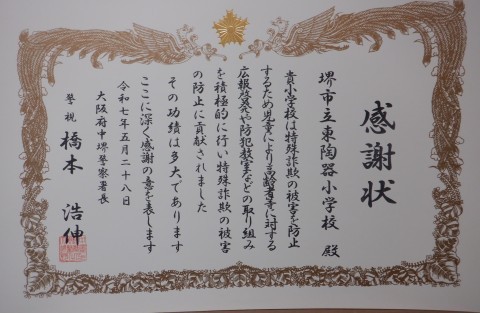 感謝状
堺市立東陶器小学校 殿
貴小学校は特殊詐欺の被害を防止
するため児童により高齢者等に対する
広報啓発や防犯教室などの取り組み
を積極的に行い特殊詐欺の被害
の防止に貢献されました
その功績は多大であります
ここに深く感謝の意を表します
令和七年五月二十八日
大阪府中堺警察署長
警視 橋本 浩伸